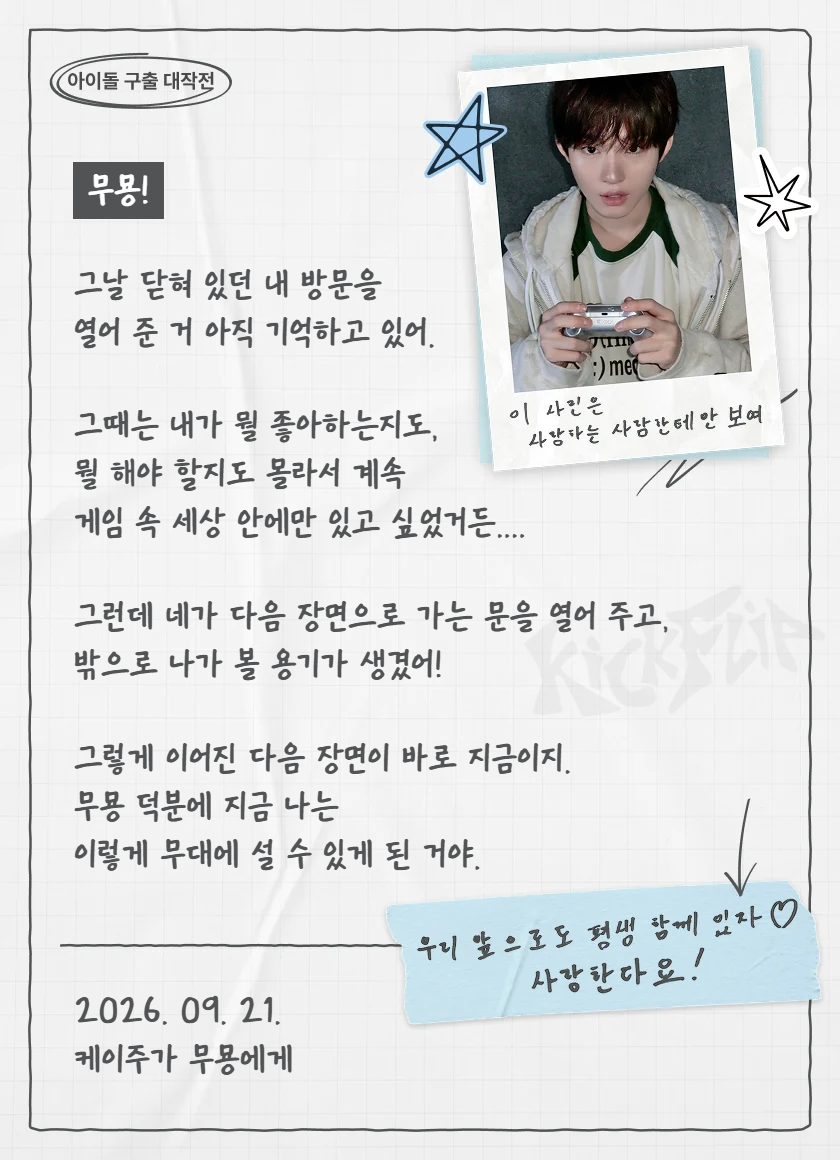 아이돌 구출 대작전
무묭!
이 사진은
사랑하는 사람한테 안 보여
그날 닫혀 있던 내 방문을
열어 준 거 아직 기억하고 있어.
그때는 내가 뭘 좋아하는지도,
뭘 해야 할지도 몰라서 계속
게임 속 세상 안에만 있고 싶었거든....
그런데 네가 다음 장면으로 가는 문을 열어 주고,
밖으로 나가 볼 용기가 생겼어!
KickFlip
그렇게 이어진 다음 장면이 바로 지금이지.
무묭 덕분에 지금 나는
이렇게 무대에 설 수 있게 된 거야.
우리 앞으로도 평생 함께 있자♡
사랑한다요!
2026. 09. 21.
케이주가 무묭에게